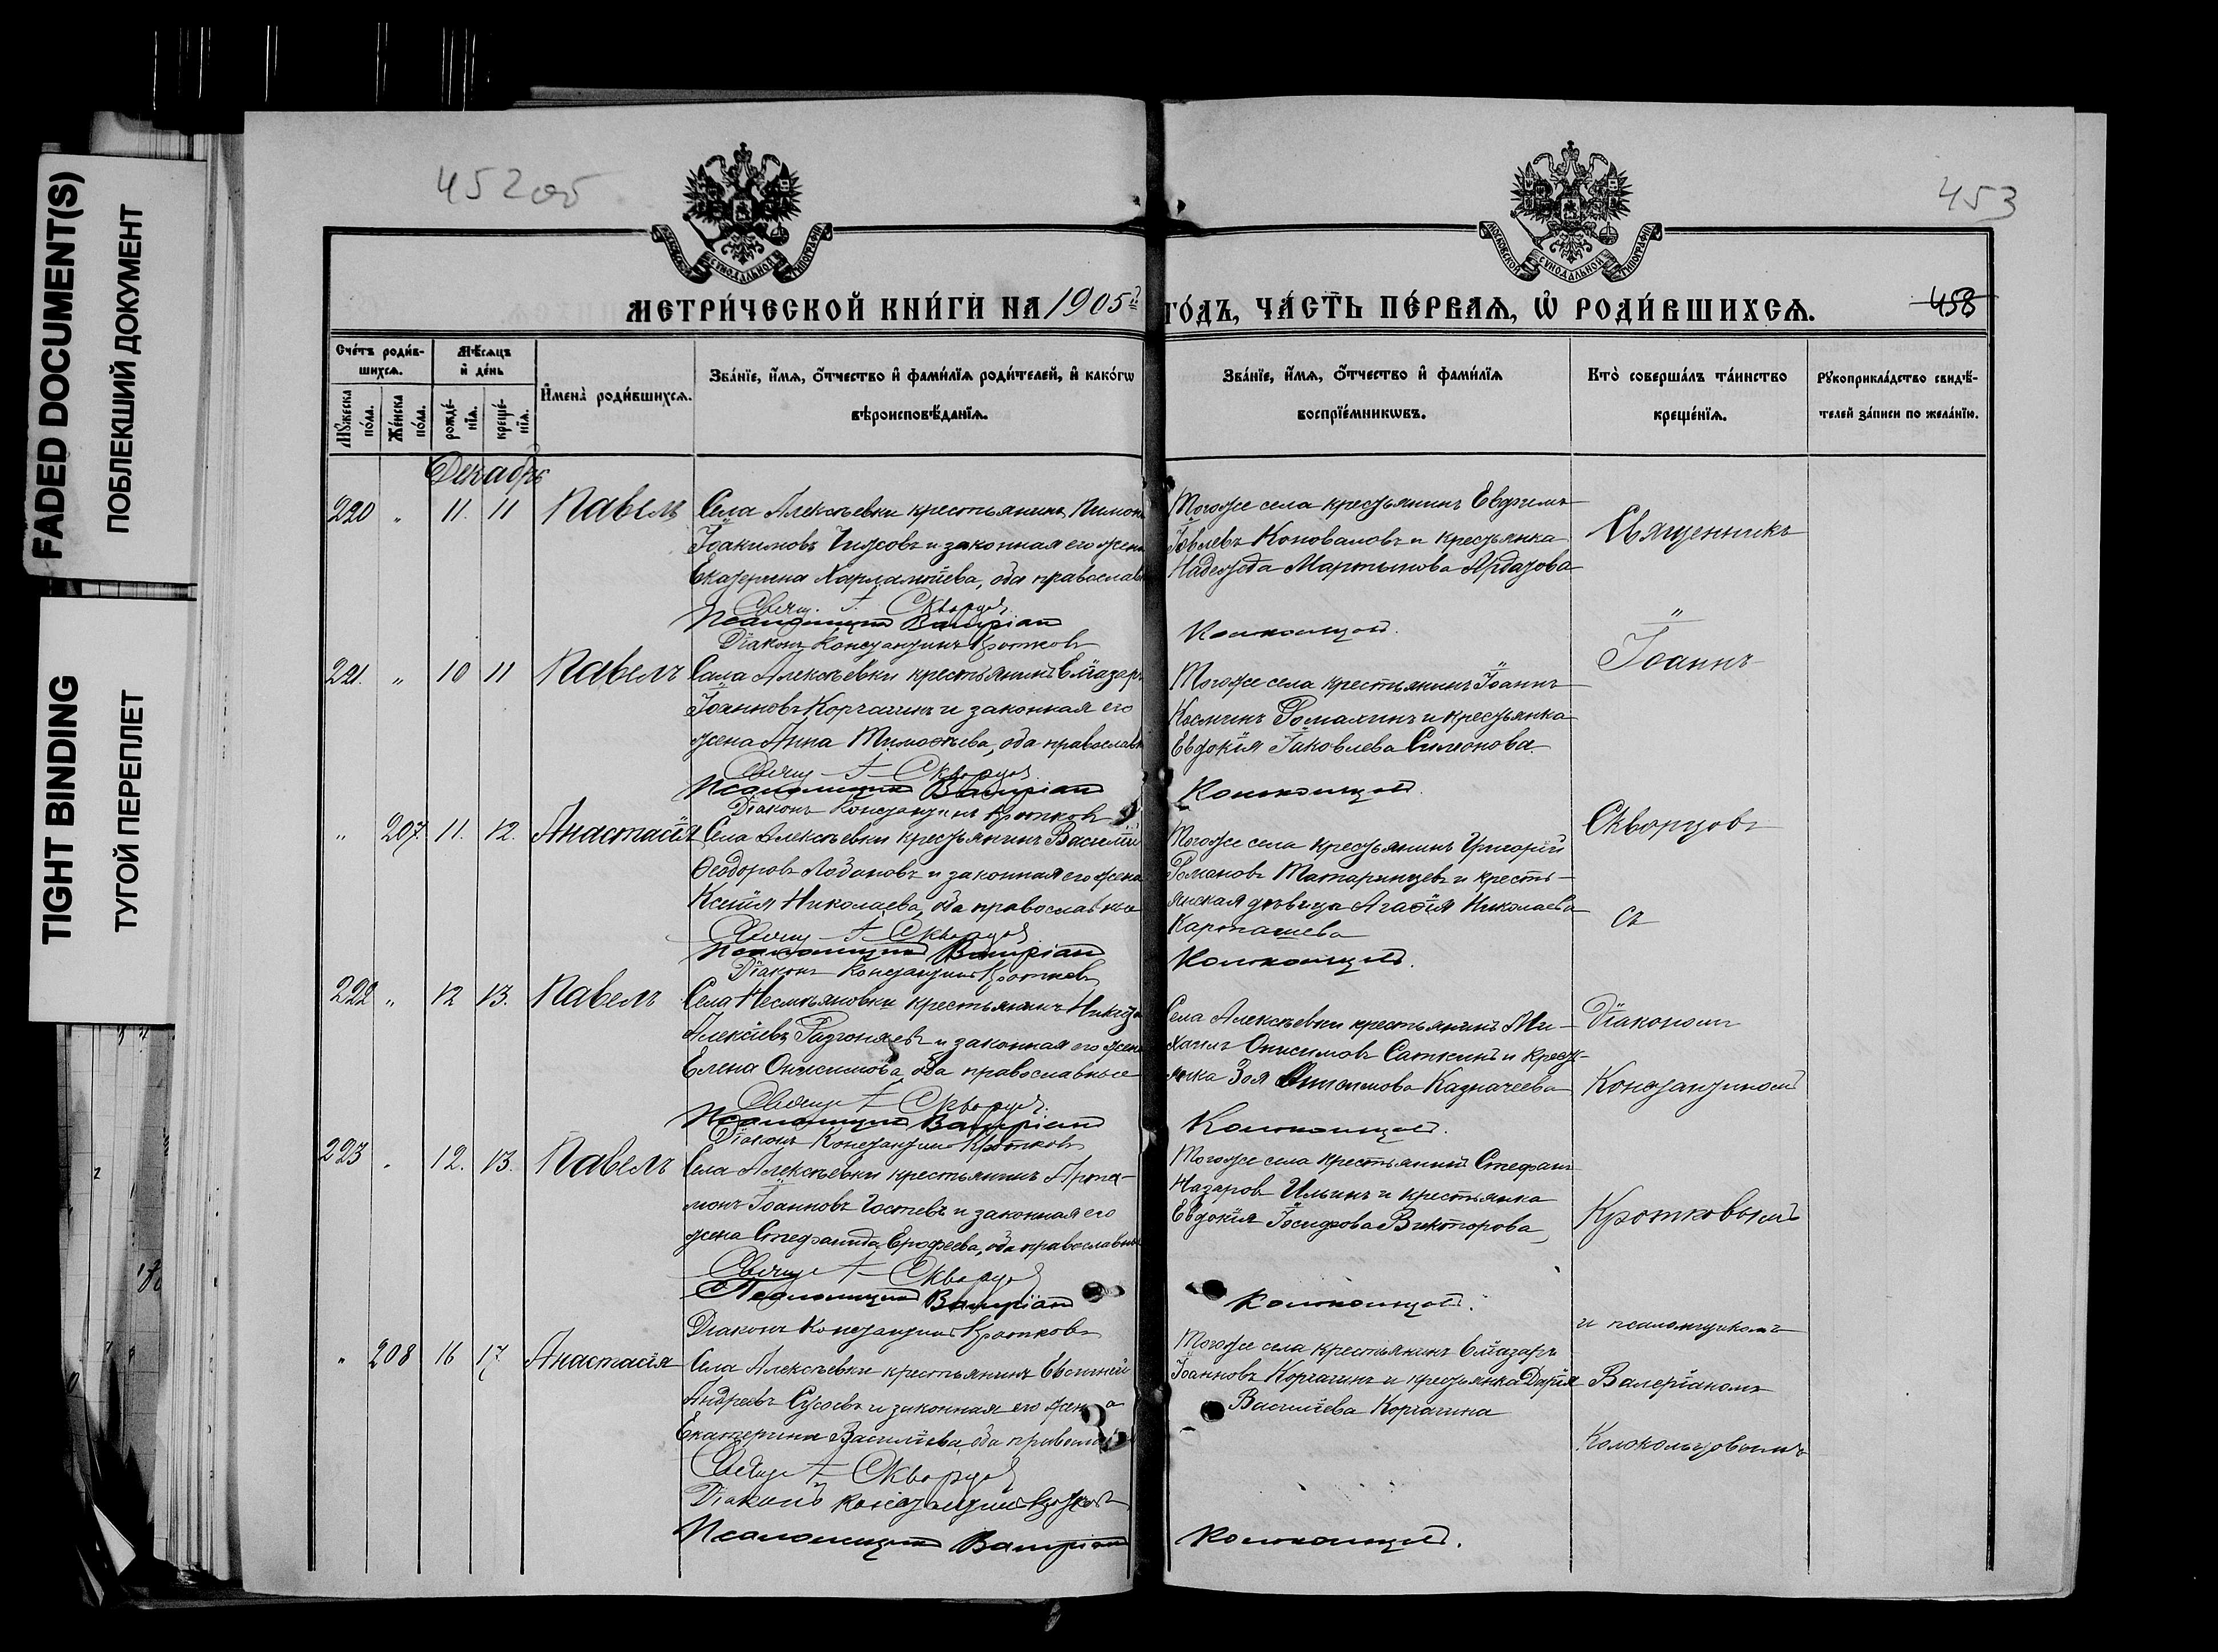 FADED DOCUMENT(S)
ПОБЛЕКШИЙ ДОКУМЕНТ
TIGHT BINDING
ТУГОЙ ПЕРЕПЛЕТ
452об
453
МОСКОВСКОЙ СУНОДАЛЬНОЙ ТИПОГРАФІИ
МОСКОВСКОЙ СУНОДАЛЬНОЙ ТИПОГРАФІИ
МЕТРИ́ЧЕСКОЙ КНИ́ГИ НА 1905 ГО́ДЪ, ЧА́СТЬ ПЕ́РВАѦ, Ѡ҆ РОДИ́ВШИХСѦ.
458
Сче́тъ роди́в-
шихсѧ.
Мꙋ́жеска по́ла.
Же́нска по́ла.
Мѣ́сѧцъ
и҆ де́нь
рожде́-
нїѧ.
креще́-
нїѧ.
И҆мена̀ роди́вшихсѧ.
Зва́нїе, и҆́мѧ, ѻ҆́тчество и҆ фами́лїѧ роди́телей, и҆ како́гѡ
вѣроисповѣ́данїѧ.
Зва́нїе, и҆́мѧ, ѻ҆́тчество и҆ фами́лїѧ
воспрїе́мникѡвъ.
Кто̀ соверша́лъ та́инство
креще́нїѧ.
Рꙋкоприкла́дство свидѣ́-
телей за́писи по жела́нїю.
Декабрь
220 " 11. 11 Павелъ
Села Алексѣевки крестьянинъ Пимонъ
Іоакимовъ Чижовъ и законная его жена
Екатерина Харлампіева, оба православ
Свящ. І. Скворцовъ
Псаломщикъ Валеріанъ
Діаконъ Константинъ Кротковъ
Тогоже села крестьянинъ Евфимъ
Іовлевъ Коноваловъ и крестьянка
Надежда Мартынова
Колокольцовъ.
Священникъ
221. " 10 11 Павелъ
Села Алексѣевки крестьянинъ Еліазаръ
Іоанновъ Корчагинъ и законная его
жена Анна Тимоѳеева, оба православн
Свящ. І. Скворцовъ
Псаломщикъ Валеріанъ
Діаконъ Константинъ Кротковъ
Тогоже села крестьянинъ Іоаннъ
Космичъ и крестьянка
Евдокія Іаковлева Симонова
Колокольцовъ.
Іоаннъ
" 207. 11. 12. Анастасія
Села Алексѣевки крестьянинъ Василій
Ѳеодоровъ Лобановъ и законная его жена
Ксенія Николаева, оба православные
Свящ. І. Скворцовъ
Псаломщикъ Валеріанъ
Діаконъ Константинъ Кротковъ
Тогоже села крестьянинъ Григорій
Романовъ Татаринцевъ и кресть-
янская дѣвица Агаѳія Николаева
Карпашева
Колокольцовъ.
Скворцовъ
съ
222 " 12 13. Павелъ
Села Несмѣяновки крестьянинъ Никита
Алексіевъ и законная его жена
Елена Онисимова оба православные
Свящ. І. Скворцовъ
Псаломщикъ Валеріанъ
Діаконъ Константинъ Кротковъ
Села Алексѣевки крестьянинъ Ми-
хаилъ Онисимовъ Саткинъ и крест-
янка Зоя Онисимова Казначеева
Колокольцовъ.
Діакономъ
Константиномъ
223 " 12. 13. Павелъ
Села Алексѣевки крестьянинъ Арта-
монъ Іоанновъ Гостевъ и законная его
жена Стефанида Ерофеева, оба православн
Свящ. І. Скворцовъ
Псаломщикъ Валеріанъ
Діаконъ Константинъ Кротковъ
Тогоже села крестьянинъ Стефанъ
Назаровъ Ильинъ и крестьянка
Евдокія Іосифова Викторова
Колокольцовъ.
Кротковымъ
и псаломщикомъ
" 208 16 17 Анастасія
Села Алексѣевки крестьянинъ Евсигней
Андреевъ Сусоевъ и законная его жена
Екатерина Василіева, оба правосла
Свящ. І. Скворцовъ
Діаконъ Константинъ Кротковъ
Псаломщикъ Валеріанъ
Тогоже села крестьянинъ Еліазаръ
Іоанновъ Корчагинъ и крестьянка Дарія
Василіева Корчагина
Колокольцовъ.
Валеріаномъ
Колокольцовымъ